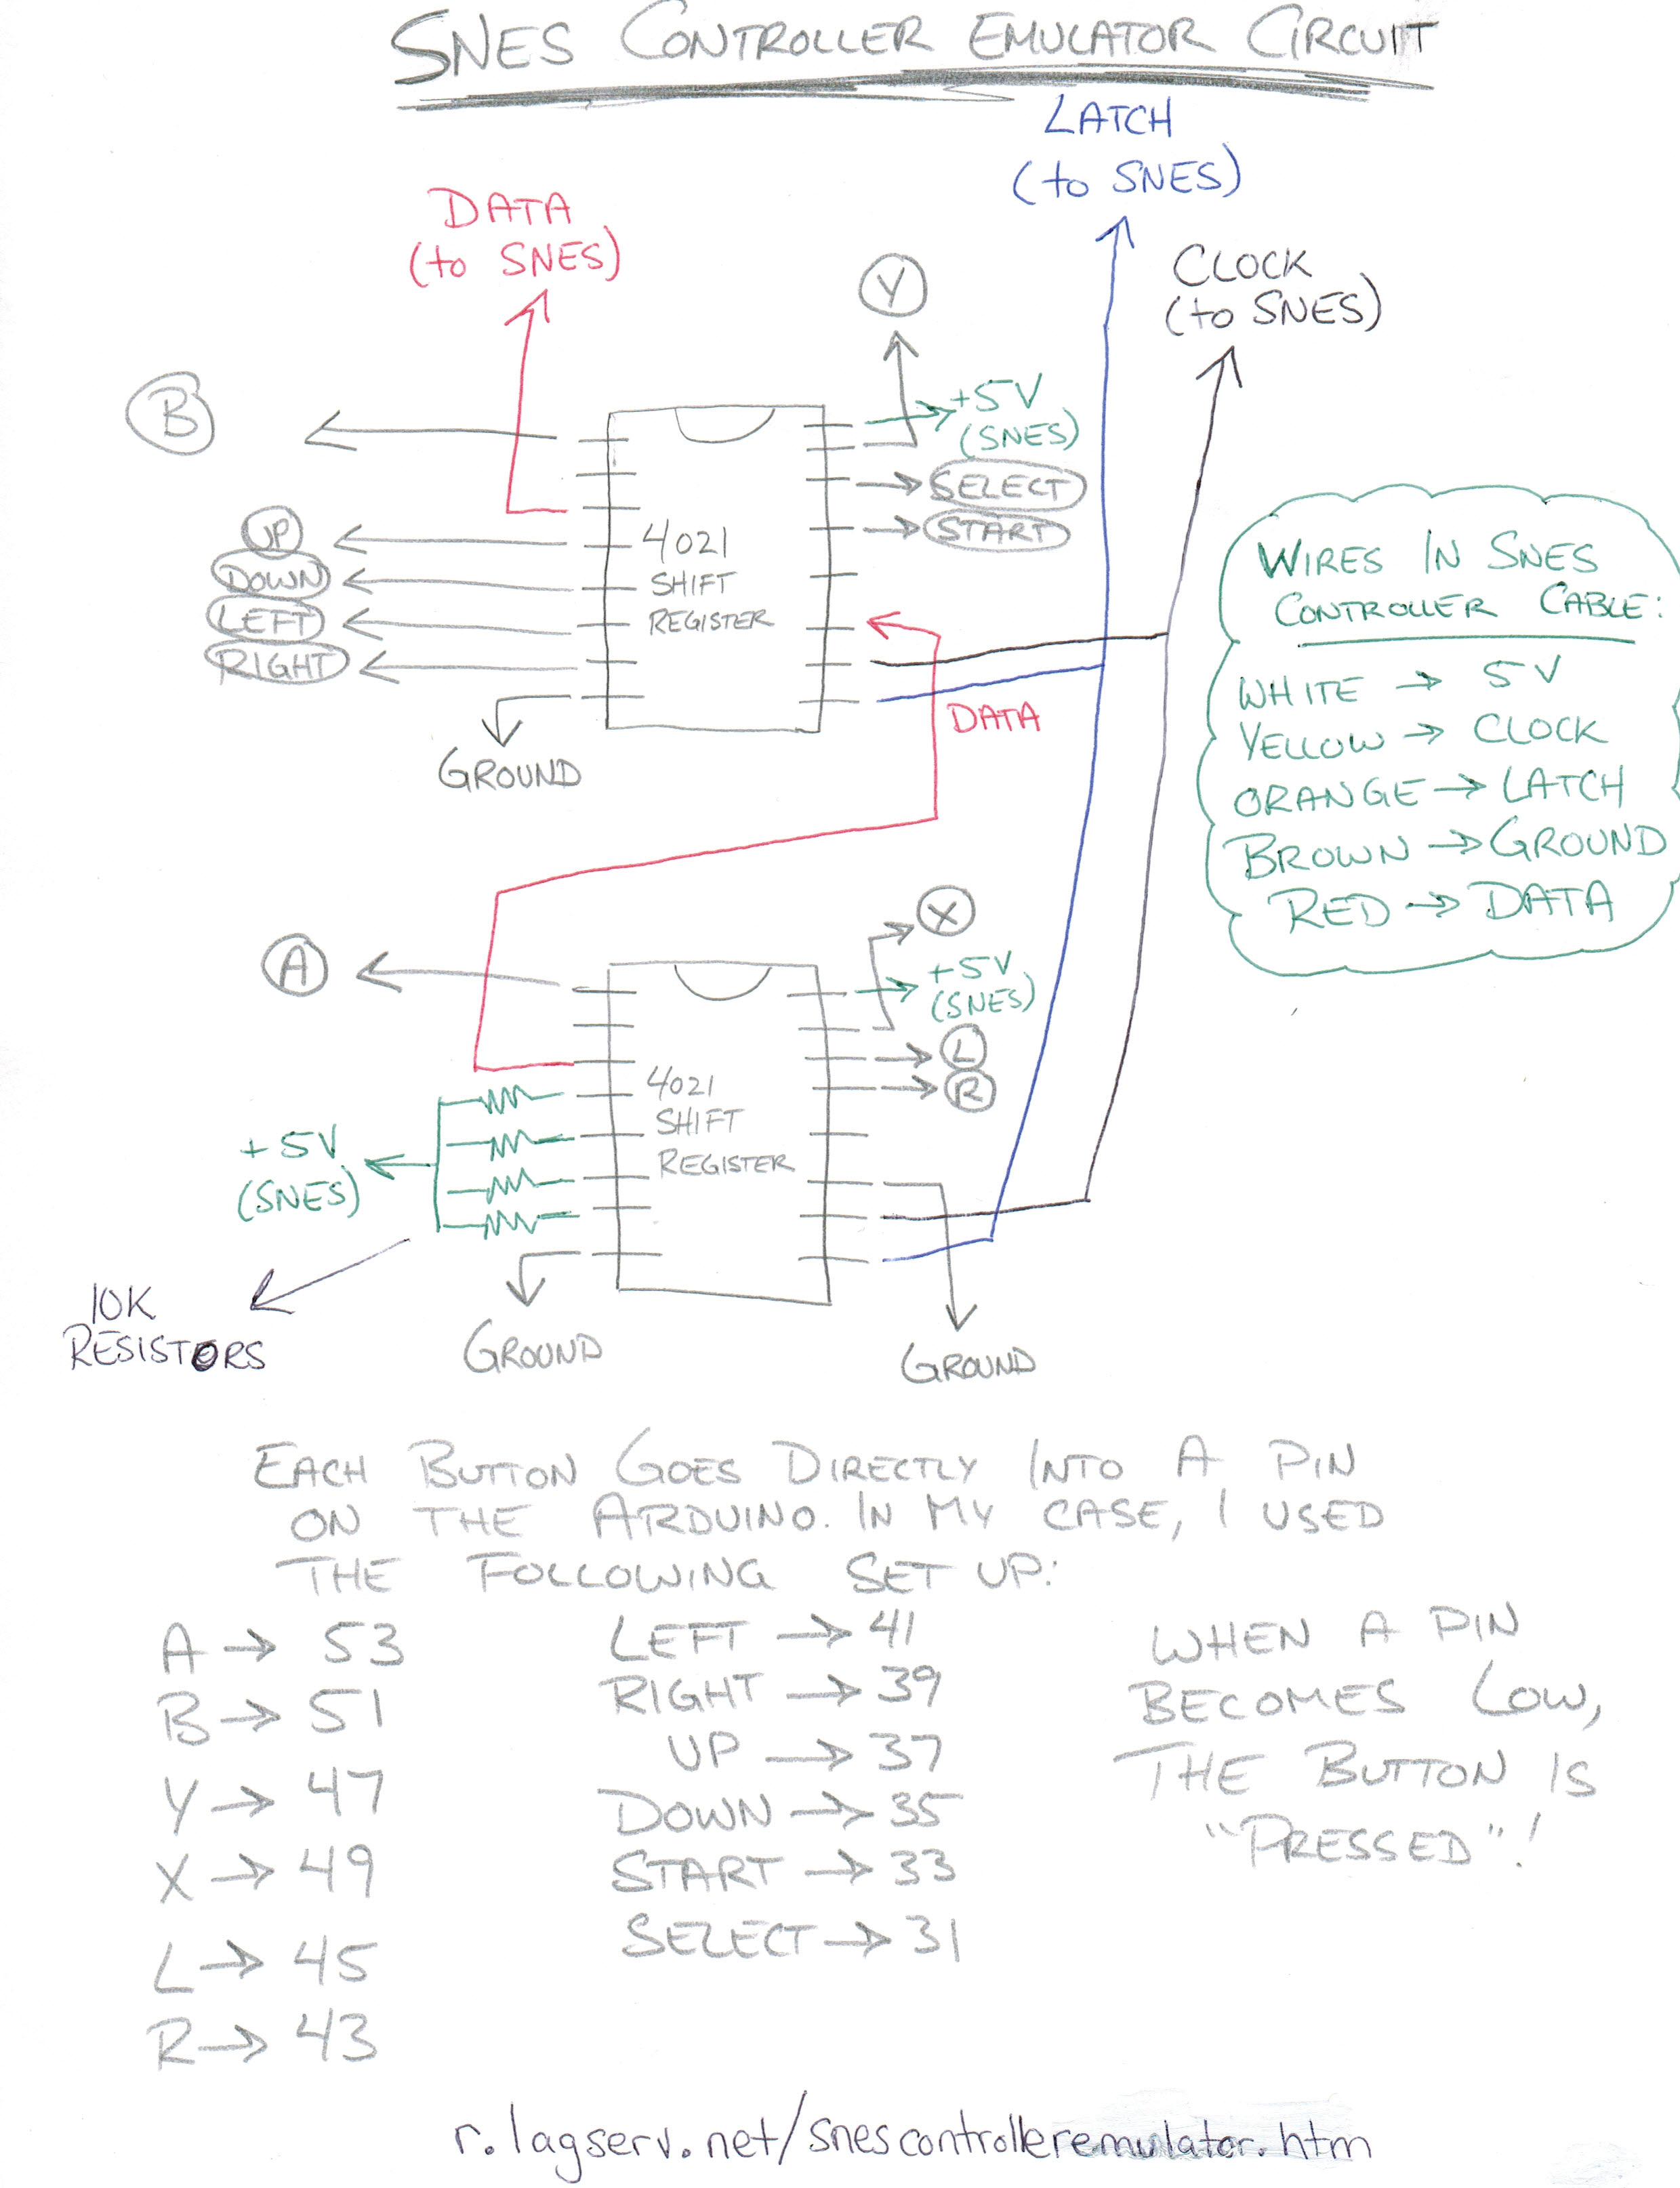 SNES CONTROLLER EMULATOR CIRCUIT
LATCH
(to SNES)
DATA
(to SNES)
CLOCK
(to SNES)
Y
B
+5V
(SNES)
SELECT
START
UP
DOWN
LEFT
RIGHT
4021
SHIFT
REGISTER
GROUND
DATA
WIRES IN SNES
CONTROLLER CABLE:
WHITE → 5V
YELLOW → CLOCK
ORANGE → LATCH
BROWN → GROUND
RED → DATA
X
A
+5V
(SNES)
L
R
4021
SHIFT
REGISTER
+5V
(SNES)
10K
RESISTORS
GROUND
GROUND
EACH BUTTON GOES DIRECTLY INTO A PIN
ON THE ARDUINO. IN MY CASE, I USED
THE FOLLOWING SET UP:
A → 53
B → 51
Y → 47
X → 49
L → 45
R → 43
LEFT → 41
RIGHT → 39
UP → 37
DOWN → 35
START → 33
SELECT → 31
WHEN A PIN
BECOMES LOW,
THE BUTTON IS
"PRESSED"!
r.lagserv.net/snescontrolleremulator.htm